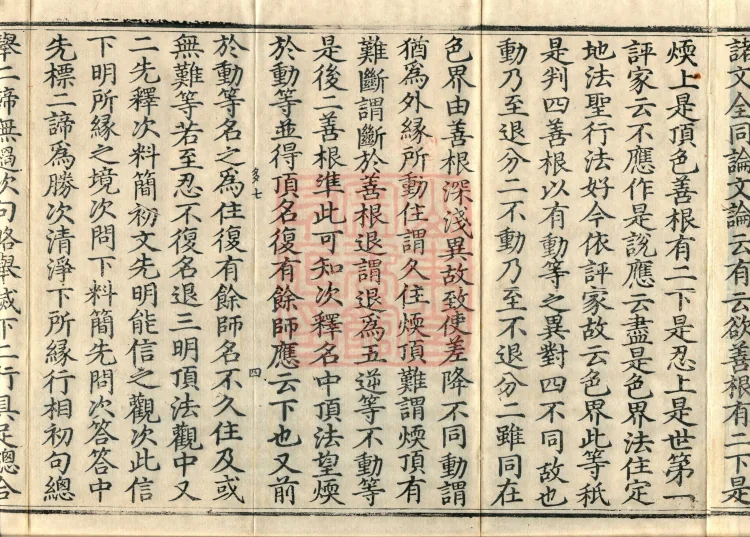 諸文全同論文論云有云欲善根有二下是
煗上是頂色善根有二下是忍上是世第一
評家云不應作是說應云盡是色界法住定
地法聖行法好今依評家故云色界此等秖
是判四善根以有動等之異對四不同故也
動乃至退分二不動乃至不退分二雖同在
色界由善根深淺異故致使差降不同動謂
猶為外緣所動住謂久住煗頂難謂煗頂有
難斷謂斷於善根退謂退為五逆等不動等
是後二善根準此可知次釋名中頂法望煗
於動等並得頂名復有餘師應云下也又前
多七
四
於動等名之為住復有餘師名不久住及或
無難等若至忍不復名退三明頂法觀中又
二先釋次料簡初文先明能信之觀次此信
下明所緣之境次問下料簡先問次答答中
先標二諦為勝次清淨下所緣行相初句總
舉二諦無過次句略舉滅下二行具足總合